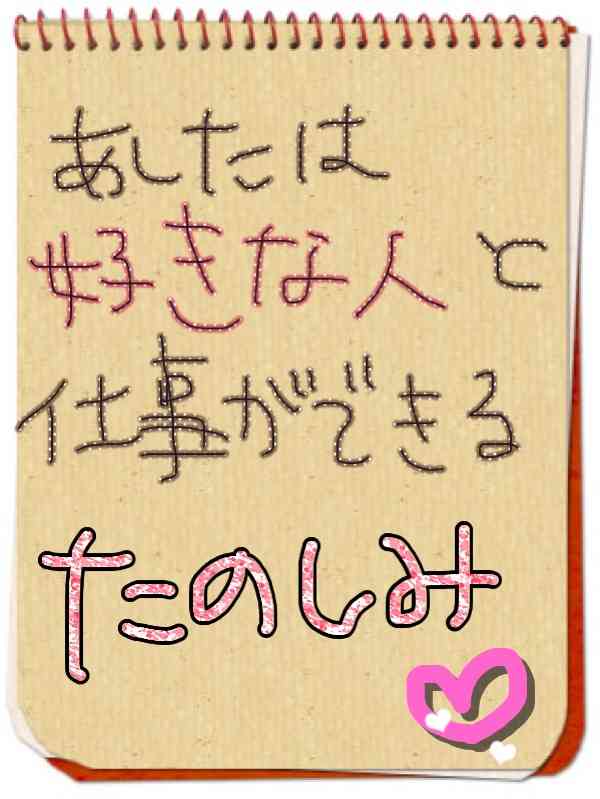 あしたは
好きな人と
仕事ができる
たのしみ